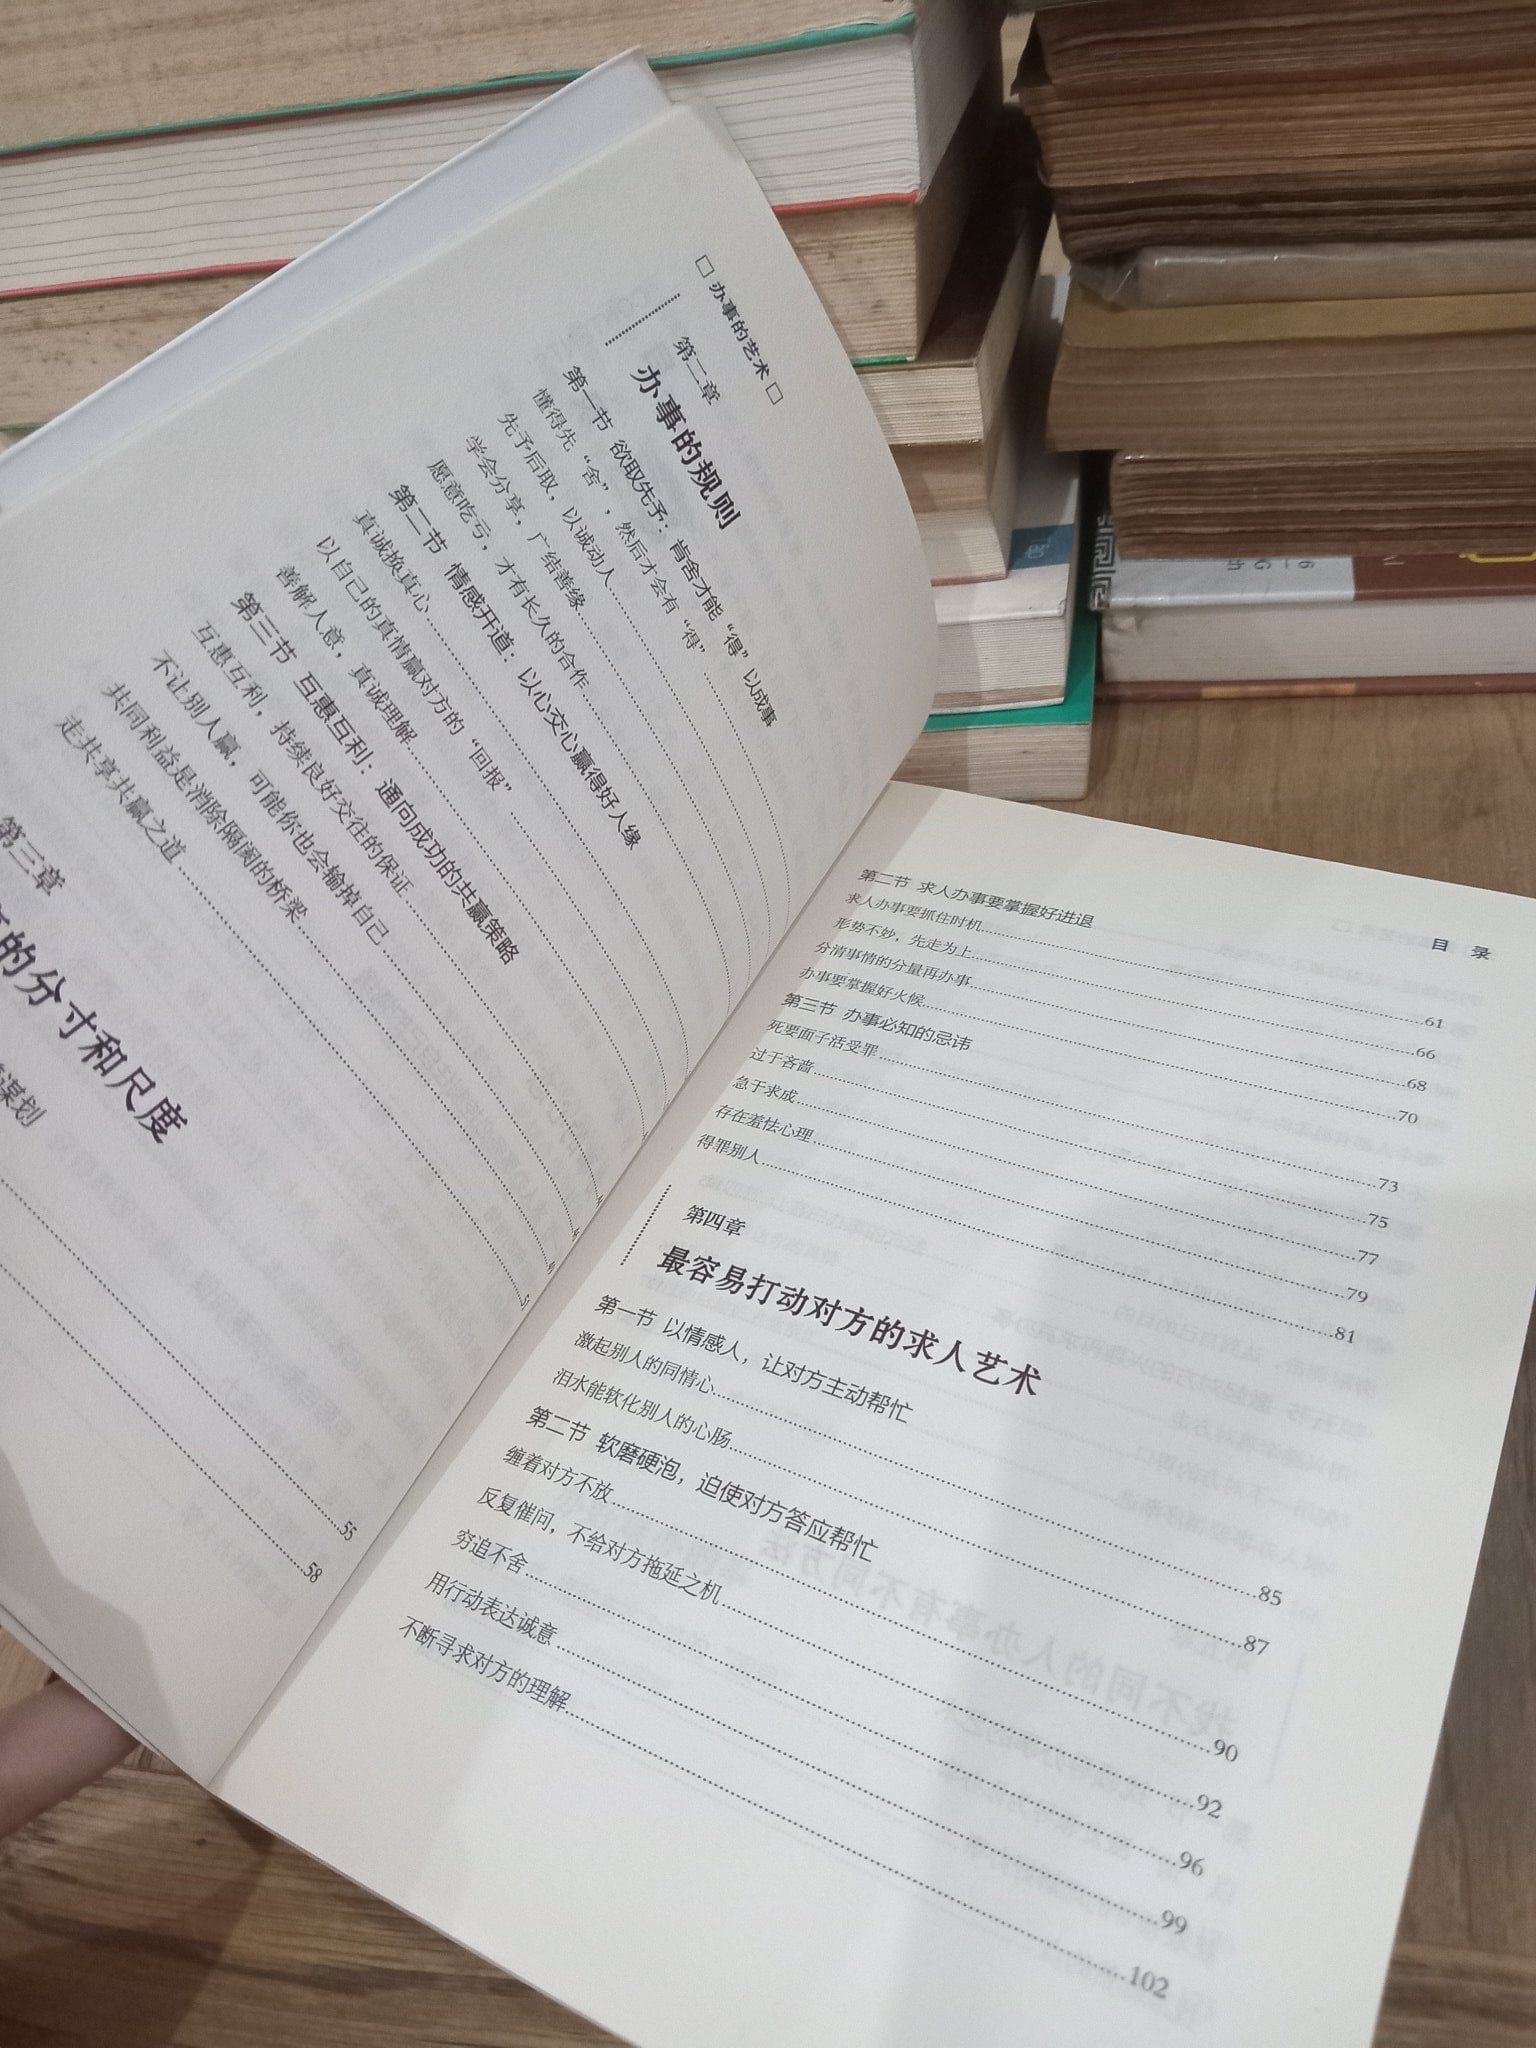 □ 办事的艺术 □
第二章
办事的规则
第一节 欲取先予：肯舍才能“得”以成事
懂得先“舍”，然后才会有“得”
先予后取，以诚动人
学会分享，广结善缘
愿意吃亏，才有长久的合作
第二节 情感开道：以心交心赢得好人缘
真诚换真心
以自己的真情赢对方的“回报”
善解人意，真诚理解
第三节 互惠互利：通向成功的共赢策略
互惠互利，持续良好交往的保证
不让别人赢，可能你也会输掉自己
共同利益是消除隔阂的桥梁
走共享共赢之道 51
第三章
的分寸和尺度
谋划
55
58
目 录
第二节 求人办事要掌握好进退
求人办事要抓住时机 61
形势不妙，先走为上 66
分清事情的分量再办事 68
办事要掌握好火候 70
第三节 办事必知的忌讳
死要面子活受罪 73
过于吝啬 75
急于求成 77
存在羞怯心理 79
得罪别人 81
第四章
最容易打动对方的求人艺术
第一节 以情感人，让对方主动帮忙
激起别人的同情心 85
泪水能软化别人的心肠 87
第二节 软磨硬泡，迫使对方答应帮忙
缠着对方不放 90
反复催问，不给对方拖延之机 92
穷追不舍 96
用行动表达诚意 99
不断寻求对方的理解 102